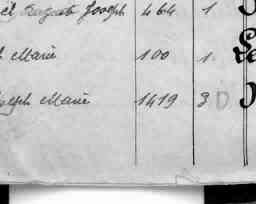 el Auguste Joseph 464 1
Marie 100 1
olph Marie 1419 3 D